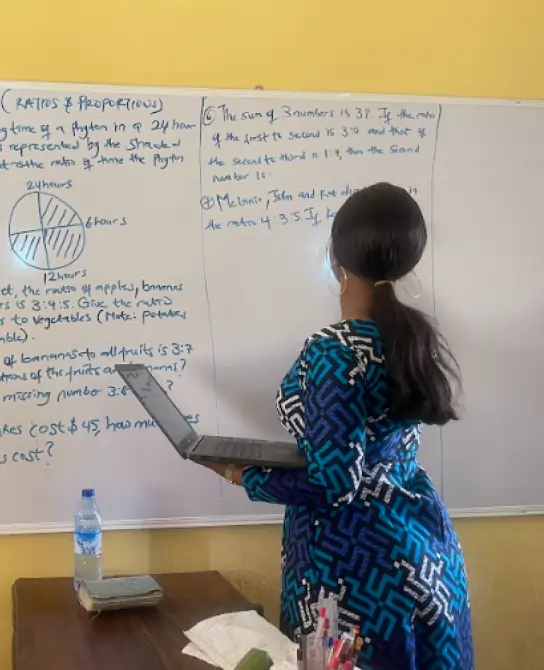 (RATIOS & PROPORTIONS)
g time of a Phyton in a 24 hour
represented by the Shaded
the ratio of time the Phyton
24 hours
6 hours
12 hours
et, the ratio of apples, bananas
is 3:4:5. Give the ratio
s to vegetables (Note: potatoes
able).
of bananas to all fruits is 3:7
of the fruits are nanas?
missing number 3:6 ?
cost $45, how mu
s cost?
⑥ The sum of 3 numbers is 3?. If the ratio
of the first to second is 3:2 and that of
the second to third is 1:4, then the second
number is:
⑦ Melanie, John and Kat di in
the ratio 4:3:5. If k